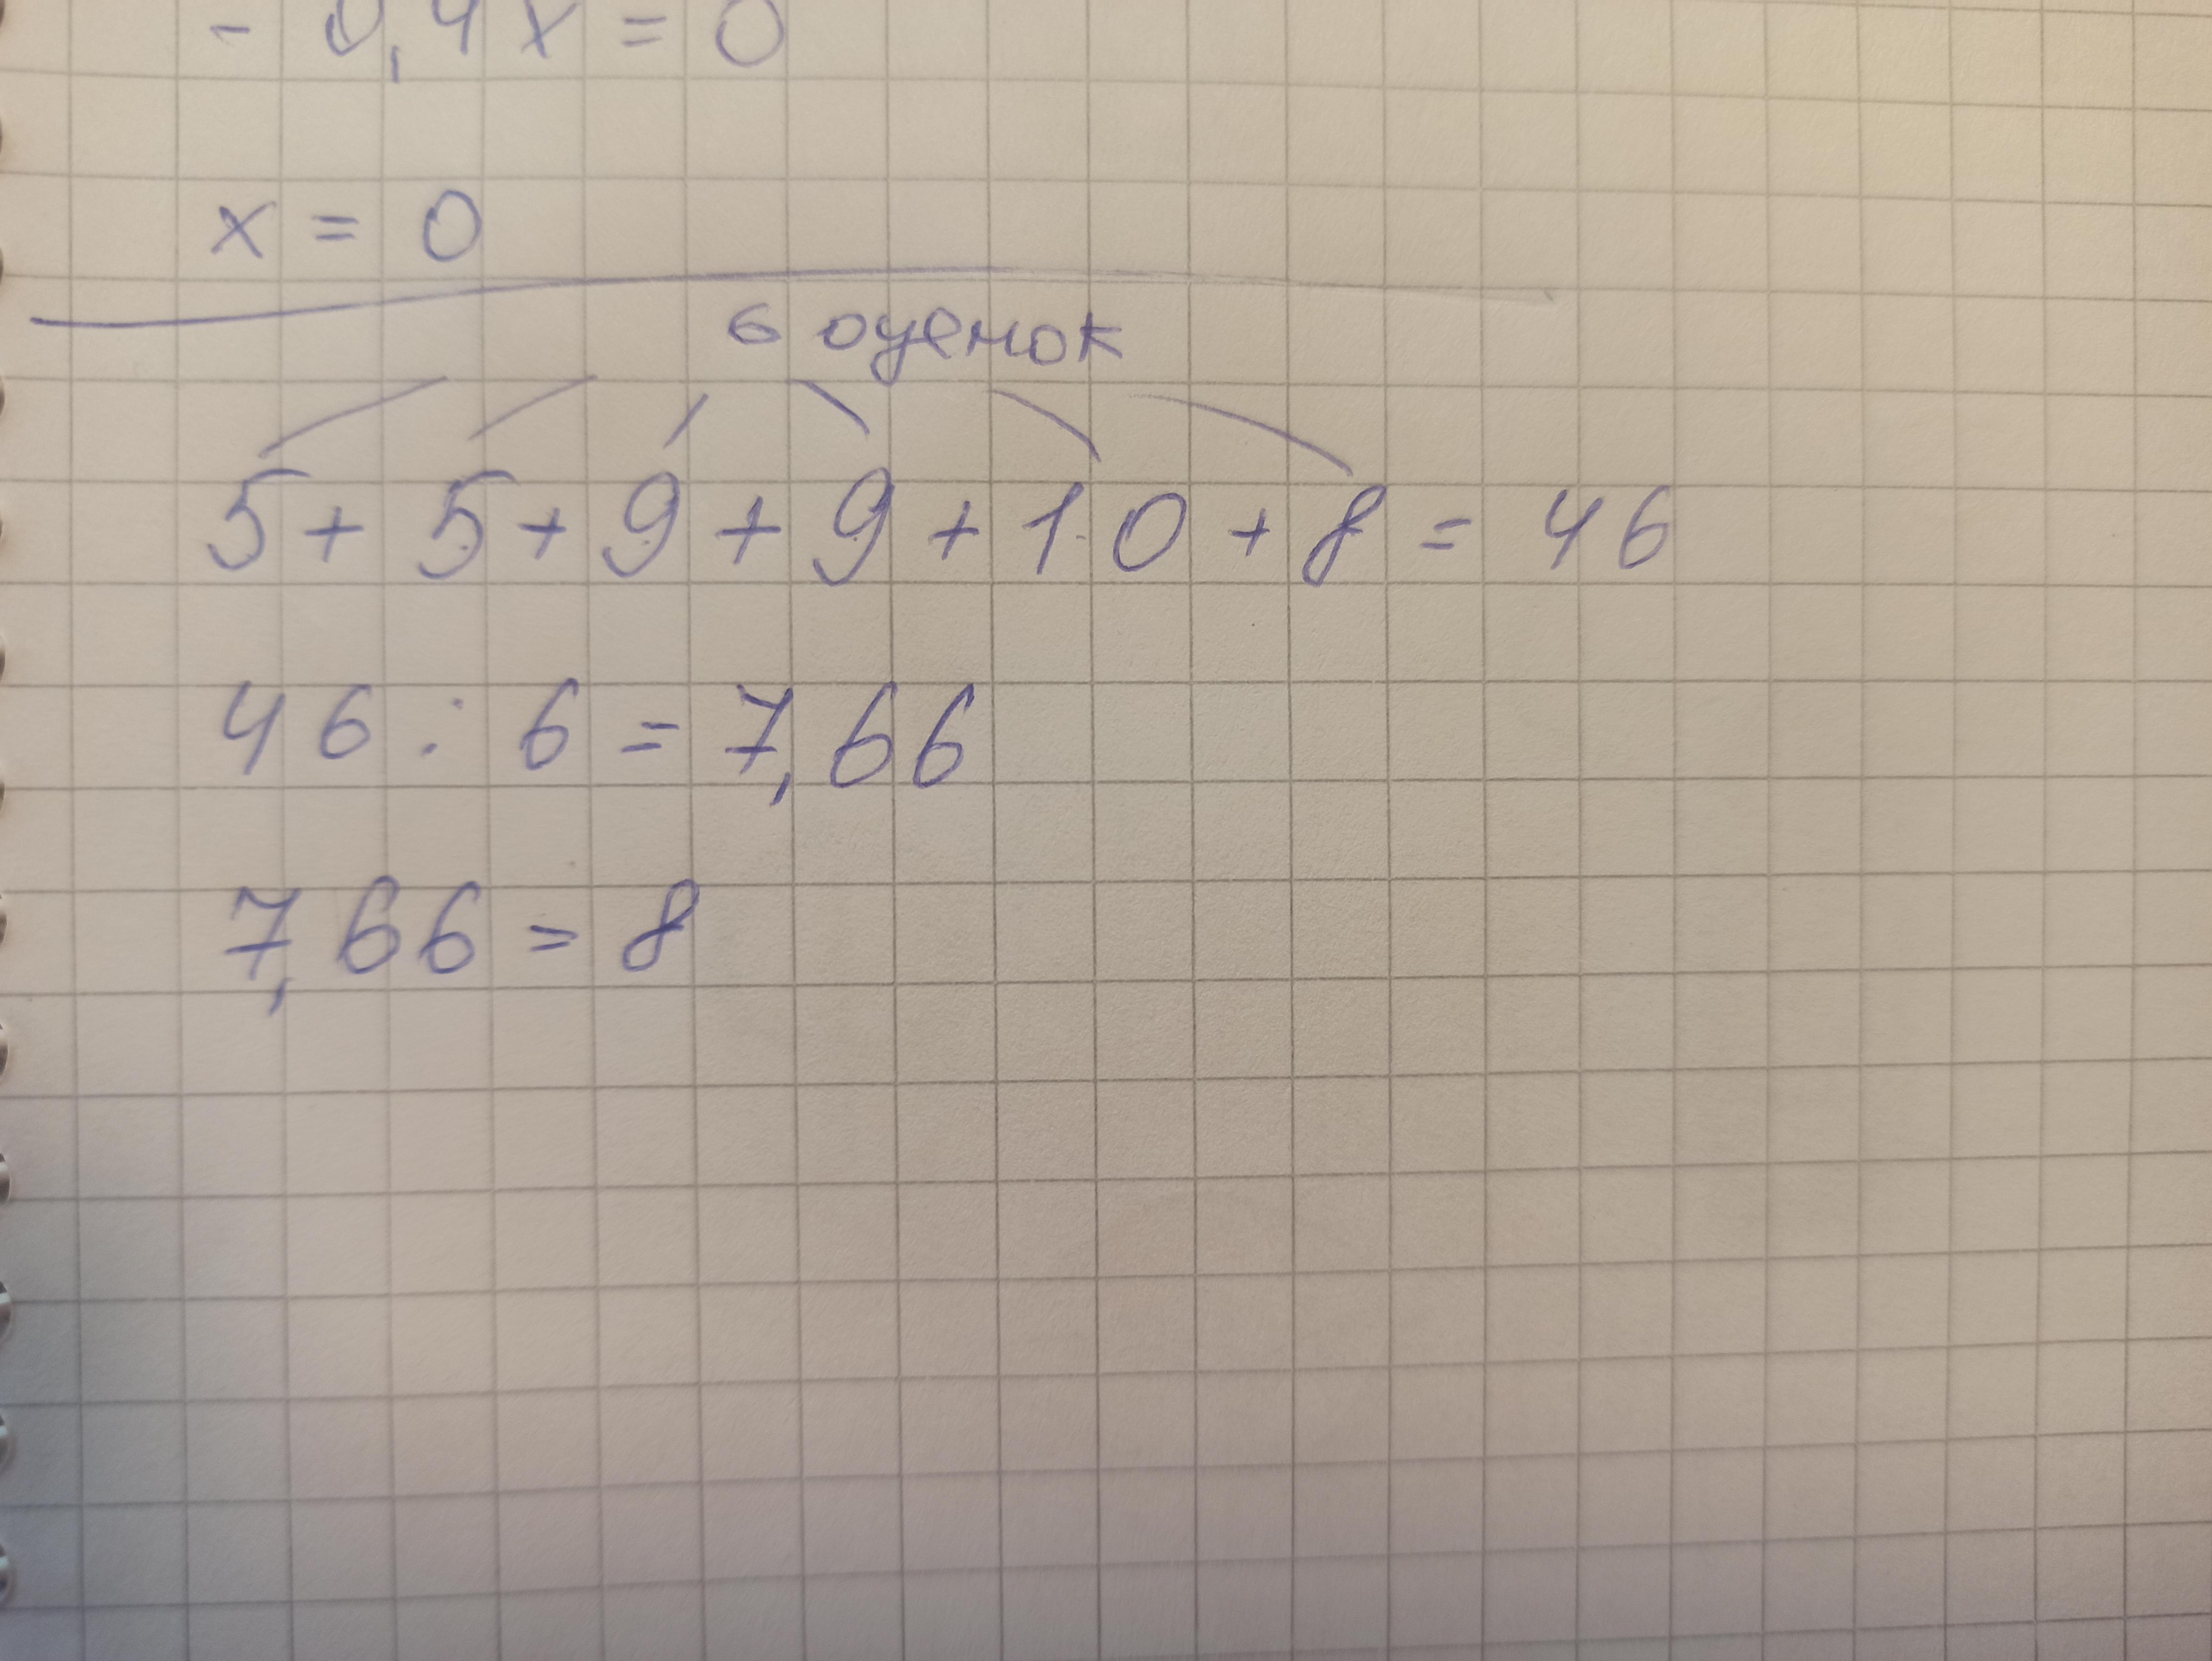 - 0,4x = 0
x = 0
6 оценок
5 + 5 + 9 + 9 + 10 + 8 = 46
46 : 6 = 7,66
7,66 = 8